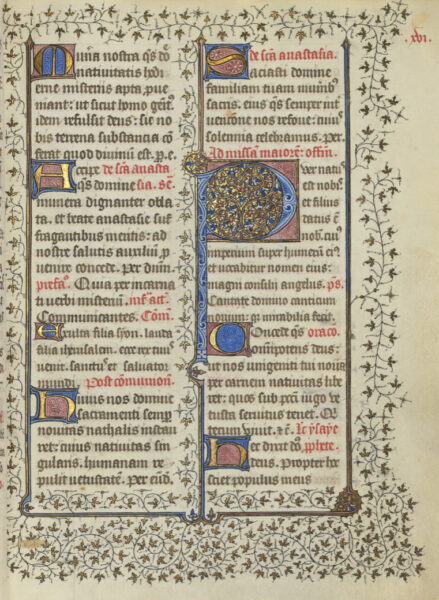 xvi.
Munera nostra qs dn̄e
nativitatis hodi
erne misteriis apta prove
niant: ut sicut homo genit̉
idem refulsit deus: sic no
bis terrena substantia cō
ferat quod divinū est. p. e.
Accipe de sc̄a anasta
qs domine sia. Se.
munera dignanter obla
ta. et beate anastasie suf
fragantibus meritis: ad
nostre salutis auxiliū p
venire concede. Per dn̄m.
prefatͦ. Quia per incarna
ti verbi misteriū. inf̄ act̄.
Communicantes. Com̄.
Exulta filia syon. lauda
filia iherusalem. ecce rex tuus
venit. sanctus et salvator
mundi. Post cōmunion̄.
Huius nos domine
sacramenti semper
novitas nathalis instau
ret: cuius nativitas sin
gularis. humanam re
pulit vetustatē. Per eūd.
De sc̄a anastasia.
Saciasti domine
familiam tuam munerib̉
sacris. eius qs semper int̉
ventione nos refove. cuius
solennia celebramus. Per.
Ad missam maiorē: offin̄.
Puer nat̉
est nobis
et filius
datus ē
nob. cuius
imperium super humerū eỉ
et vocabitur nomen eius:
magni consilij angelus. ps.
Cantate domino canticum
novum: q. mirabilia fecit.
Concede qs oracō.
omnipotens deus:
ut nos unigeniti tui nova
per carnem nativitas libe
ret: quos sub pcc̄i iugo ve
tusta servitus tenet. Q
tecum vivit. et c̄. Lc̄ ysaye
Hec dicit dn̄s. pphete.
deus. Propter hoc
sciet populus meus